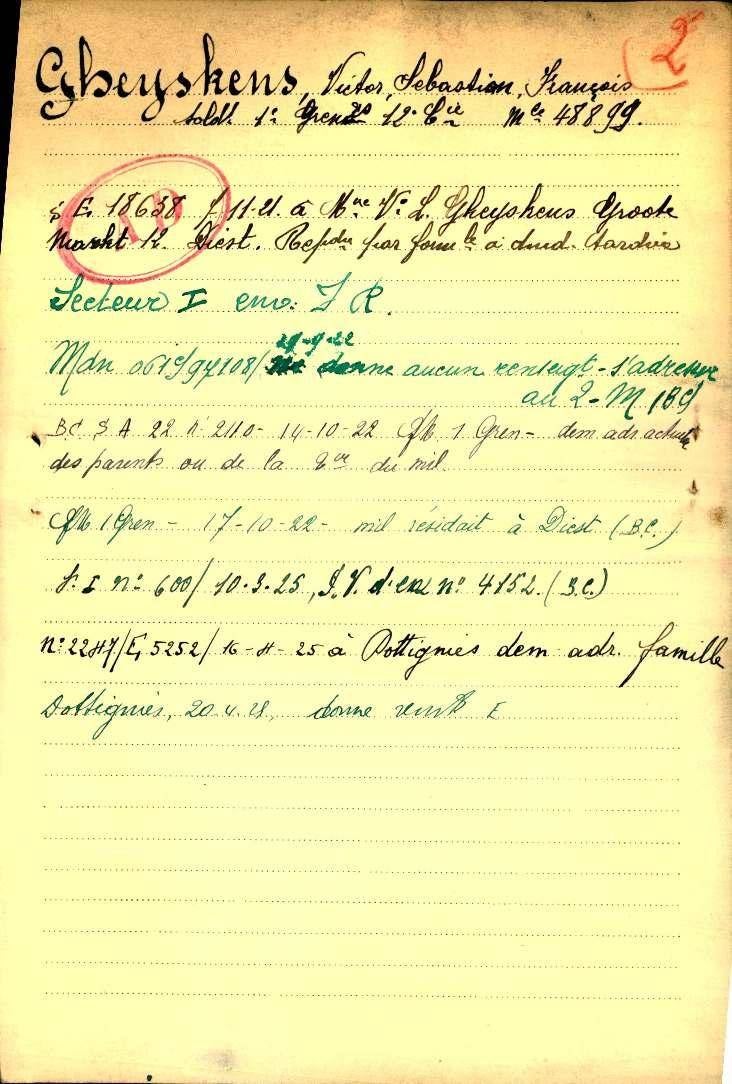 2
Gheyskens, Victor, Sebastian, François
sold! 1º Grenrs 12º Cie Mle 48899.
§ E. 18638 11-21. à Mme Ve L. Gheyskens Groote
Markt 12. Diest. par formle à dmd. tardive
Secteur I env. J R.
29-9-22
Mdn 0619/97108/ ne donne aucun renseigt - s'adresser
au 2-M (BC)
B.C. S A 22 nº 2110 - 14-10-22 1 Gren - dem adr actuelle
des parents ou de la du mil
1 Gren - 17-10-22 - mil résidait à Diest (B.C.)
S. I nº 600/ 10.3.25, P.V. d'exh nº 4152. (B.C.)
Nº 2247/E, 5252/ 16-4-25 à Dottignies dem adr. famille
Dottignies, 20.4.25, donne rensts E